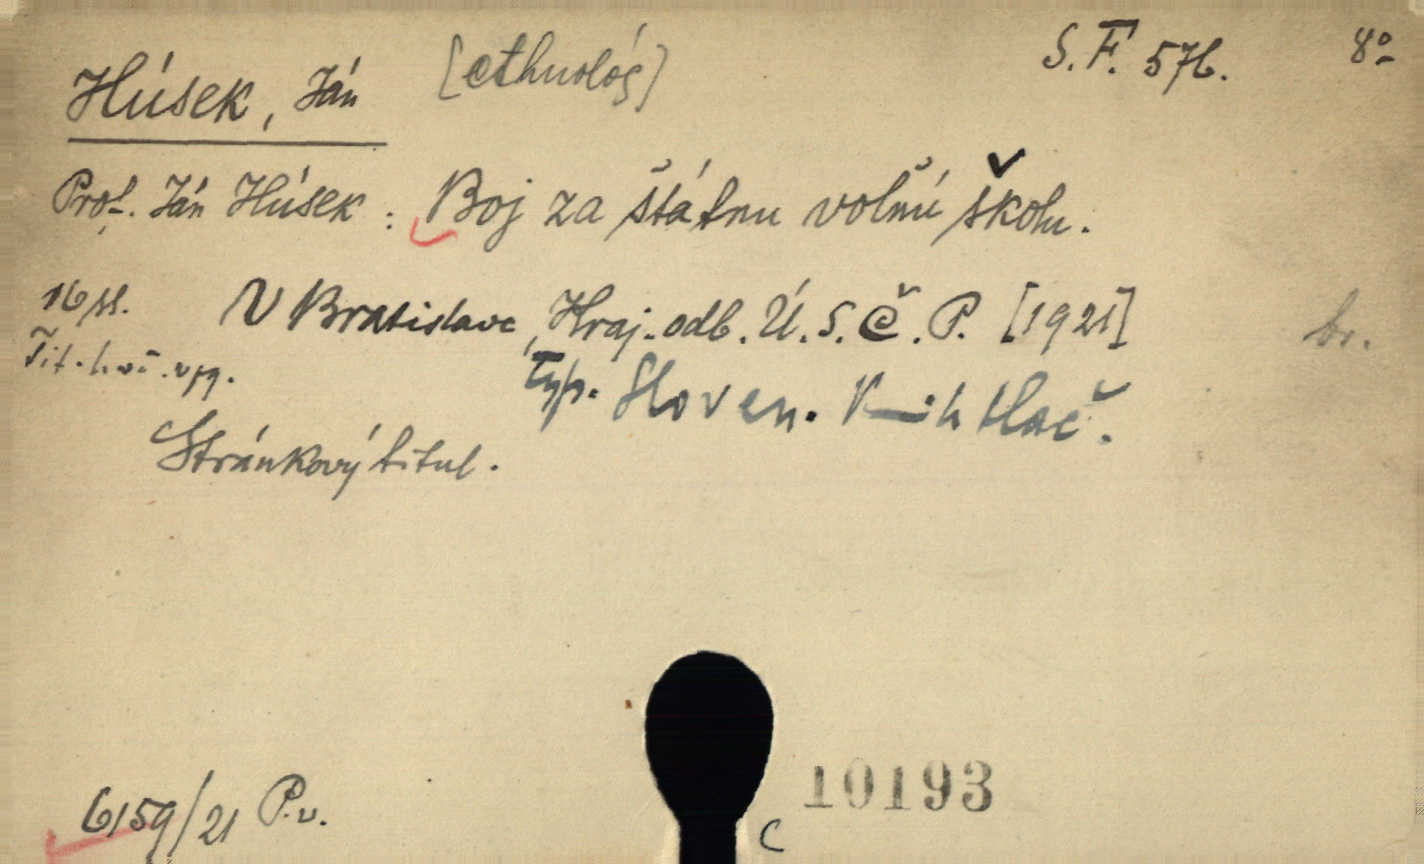 Húsek, Ján [ethnológ] S. F. 576. 8º
Prof. Ján Húsek: Boj za štátnu volnú školu.
16 ss. V Bratislave, Kraj. odb. Ú. S. Č. P. [1921] br.
Typ. Sloven. Kníhtlač.
Stránkový titul.
10193
6159/21 P.v.
C